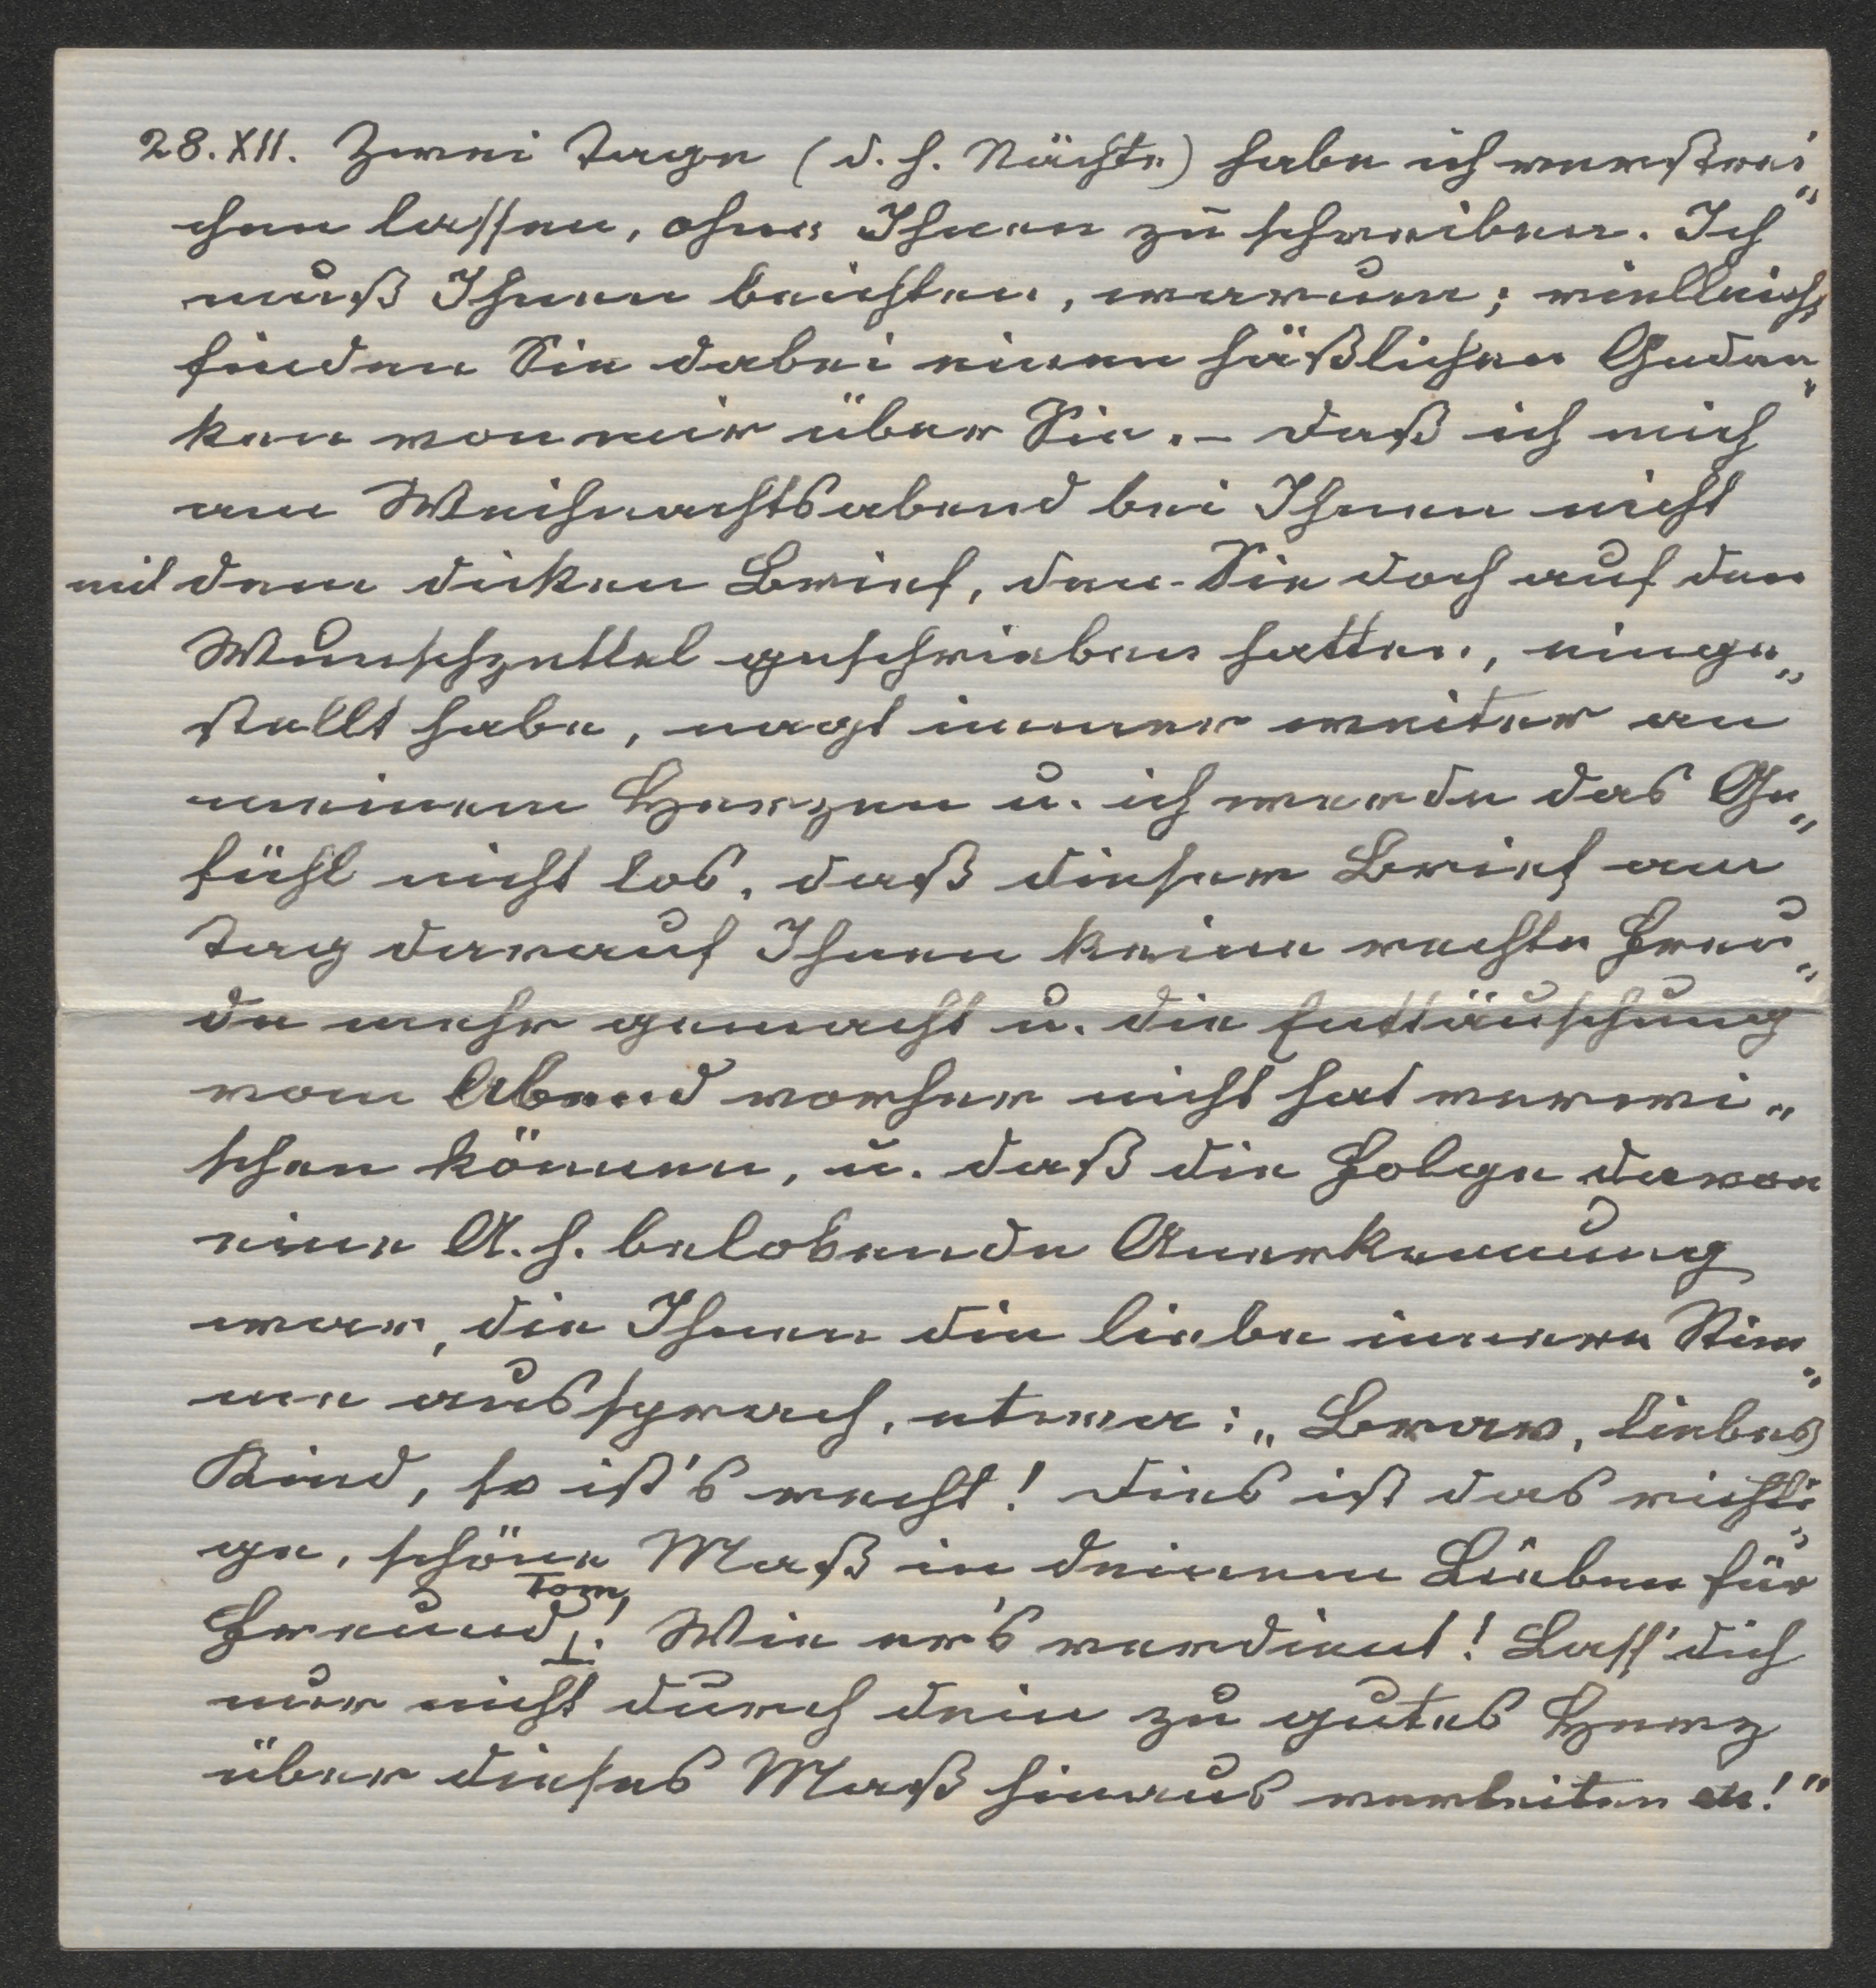 28.XII. Zwei Tage (d. h. Nächte) habe ich verstrei„
chen lassen, ohne Ihnen zu schreiben. Ich
muß Ihnen beichten, warum; vielleicht
finden Sie dabei einen häßlichen Gedan„
ken von mir über Sie. – Daß ich mich
am Weihnachtsabend bei Ihnen nicht
mit dem dicken Brief, den Sie doch auf den
Wunschzettel geschrieben hatten, einge„
stellt habe, nagt immer weiter an
meinem Herzen u. ich werde das Ge„
fühl nicht los, daß dieser Brief am
Tag darauf Ihnen keine rechte Freu„
de mehr gemacht u. die Enttäuschung
vom Abend vorher nicht hat verwi„
schen können, u. daß die Folge davon
eine A. h. belobende Anerkennung
war, die Ihnen die liebe innere Stim„
me aussprach, etwa: „Brav, liebes
Kind, so ist's recht! Dies ist das richti„
ge, schöne Maß in deinem Lieben für
Freund Tom! Wie er's verdient! Lass' dich
nur nicht durch dein zu gutes Herz
über dieses Maß hinaus verleiten etc!"